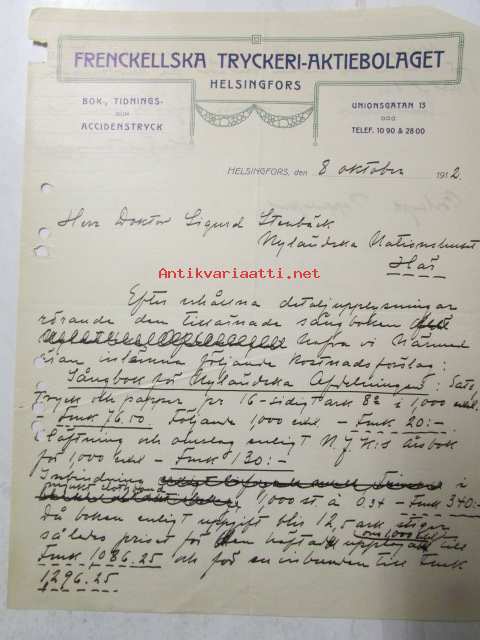 FRENCKELLSKA TRYCKERI-AKTIEBOLAGET
HELSINGFORS
BOK-, TIDNINGS-
OCH
ACCIDENSTRYCK
UNIONSGATAN 13
TELEF. 10 90 & 28 00
HELSINGFORS, den 8 oktober 1912.
Herr Doktor Sigurd Stenbäck
Nyländska Nationshuset
Här
Antikvariaatti.net
Efter erhållna detaljupplysningar
rörande den tillärnade sångboken
hafva vi härmed
äran inlämna följande kostnadsförslag:
Sångbok för Nyländska Afdelningen: Sats,
tryck och papper pr 16-sidigt ark 8º i 1,000 exl.
- Fmk 76.50. Följande 1,000 exl. - Fmk 20:-
Häftning och omslag enligt N.J.K:s årsbok
för 1000 exl - Fmk 130:-
Inbindning i
1,000 st. à 0,34 - Fmk 340:-
Då boken enligt uppgift blir 12,5 ark stiger
således priset för den häftade upplagan till
om 1,000 exl
Fmk 1086.25 och för en inbunden till Fmk
1,296.25